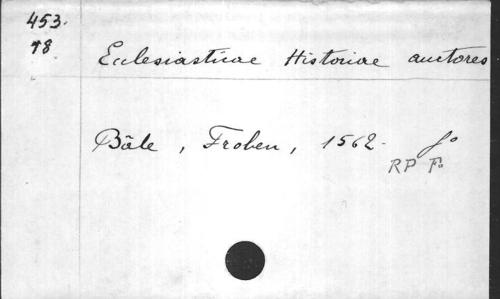 453.
78.
Ecclesiasticae Historiae auctores
Bâle, Froben, 1562. fo
RP Fo